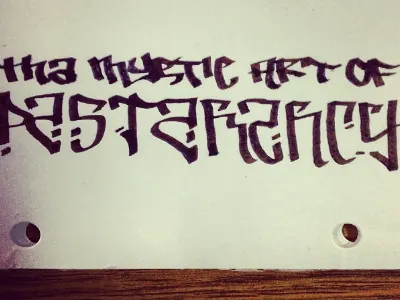 tha mystic ART OF
PASTARARCY